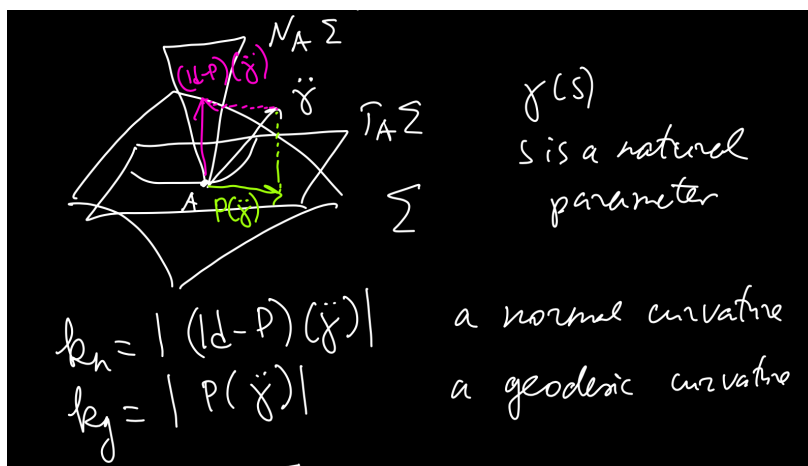 N_A Σ
(Id-P)(γ̈)
γ̈
T_A Σ
A
P(γ̈)
Σ
γ(s)
s is a natural
parameter
k_n = | (Id-P)(γ̈)| a normal curvature
k_g = | P(γ̈)| a geodesic curvature